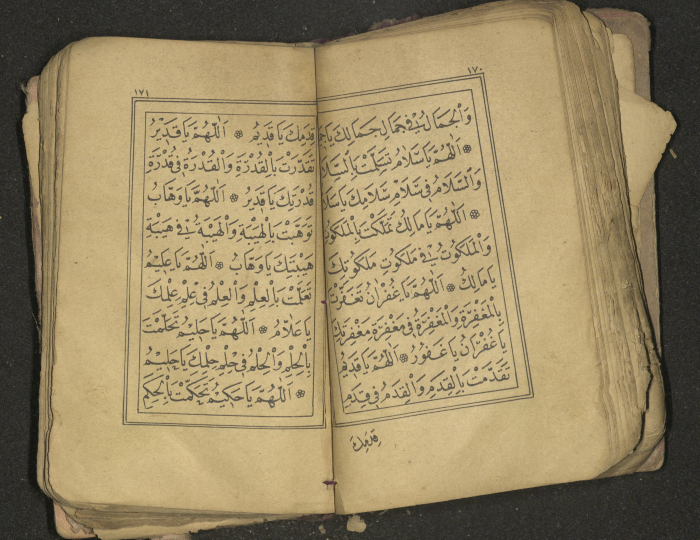 ١٧٠
وَالْجَمَالُ فِي جَمَالِ جَمَالِكَ يَا
❁ اَللّٰهُمَّ يَا سَلَامُ تَسَلَّمْتَ بِالسَّلَامِ
وَالسَّلَامُ فِي سَلَامِ سَلَامِكَ يَا سَلَامُ
❁ اَللّٰهُمَّ يَا مَالِكُ تَمَلَّكْتَ بِالْمَلَكُوتِ
وَالْمَلَكُوتُ فِي مَلَكُوتِ مَلَكُوتِكَ
يَا مَالِكُ ❁ اَللّٰهُمَّ يَا غُفْرَانُ تَغَفَّرْتَ
بِالْمَغْفِرَةِ وَالْمَغْفِرَةُ فِي مَغْفِرَةِ مَغْفِرَتِكَ
يَا غُفْرَانُ يَا غَفُورُ ❁ اَللّٰهُمَّ يَا قَدِيمُ
تَقَدَّمْتَ بِالْقِدَمِ وَالْقِدَمُ فِي قِدَمِ
قِدَمِكَ
١٧١
قِدَمِكَ يَا قَدِيمُ ❁ اَللّٰهُمَّ يَا قَدِيرُ
تَقَدَّرْتَ بِالْقُدْرَةِ وَالْقُدْرَةُ فِي قُدْرَةِ
قُدْرَتِكَ يَا قَدِيرُ ❁ اَللّٰهُمَّ يَا وَهَّابُ
تَوَهَّبْتَ بِالْهَيْبَةِ وَالْهَيْبَةُ فِي هَيْبَةِ
هَيْبَتِكَ يَا وَهَّابُ ❁ اَللّٰهُمَّ يَا عَلِيمُ
تَعَلَّمْتَ بِالْعِلْمِ وَالْعِلْمُ فِي عِلْمِ عِلْمِكَ
يَا عَلَّامُ ❁ اَللّٰهُمَّ يَا حَلِيمُ تَحَلَّمْتَ
بِالْحِلْمِ وَالْحِلْمُ فِي حِلْمِ حِلْمِكَ يَا حَلِيمُ
❁ اَللّٰهُمَّ يَا حَكِيمُ تَحَكَّمْتَ بِالْحِكَمِ